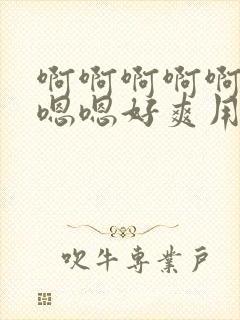 啊啊啊啊啊
嗯嗯好爽用
吹牛専業戶